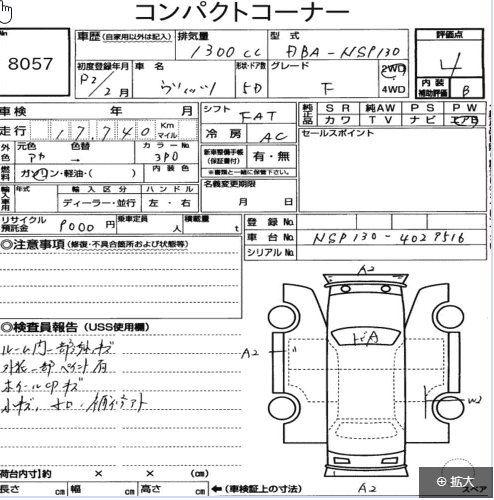 コンパクトコーナー
No
8057
車歴 (自家用以外は記入) 排気量 型式 評価点
1300cc DBA-NSP130
4
初度登録年月 車名 形状・ドア数 グレード 2WD
4WD
2月 ヴィッツ 5D F
内装
補助評価 B
車検 年 月 シフト FAT
純正品 SR 純AW PS PW
カワ TV ナビ エアB
走行 17,740 Km
マイル
冷房 AC
セールスポイント
外色 元色 色替 カラーNo.
アカ → 3P0
新車整備手帳
(保証書付) 有・無
※書類と一緒に保管下さい。
燃料 ガソリン・軽油・( ) 内装色
名義変更期限
月 日
輸入車用 年式 輸入区分 ハンドル
ディーラー・並行 左・右
リサイクル
預託金 8000 円 乗車定員 人 積載量 t
登録No.
車台No. NSP130-4029516
シリアルNo.
◎注意事項 (修復・不具合箇所および状態等)
◎検査員報告 (USS使用欄)
ルーム内一部 キズ
外装一部ペイント有
ホイールCPキズ
小キズ
A2
トビA
A2
W
A2
荷台内寸)約 × × (cm)
長さ cm 幅 cm 高さ cm ←(車検証上の寸法)
スペア
拡大